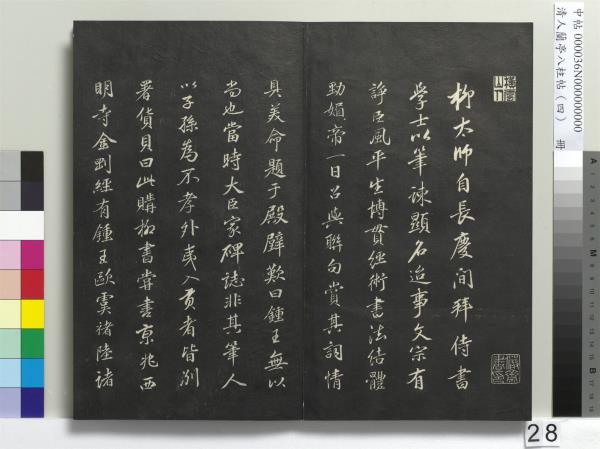 柳太師自長慶間拜侍書
學士以筆諫顯名迨事文宗有
諍臣風平生博貫經術書法結體
勁媚帝一日召與聯句賞其詞情
具美命題于殿壁歎曰鍾王無以
尚也當時大臣家碑誌非其筆人
以子孫為不孝外夷入貢者皆別
署貨貝曰此購柳書嘗書京兆西
明寺金剛經有鍾王歐虞褚陸諸
中帖 000036N000000000
清人蘭亭八柱帖(四) 冊
28